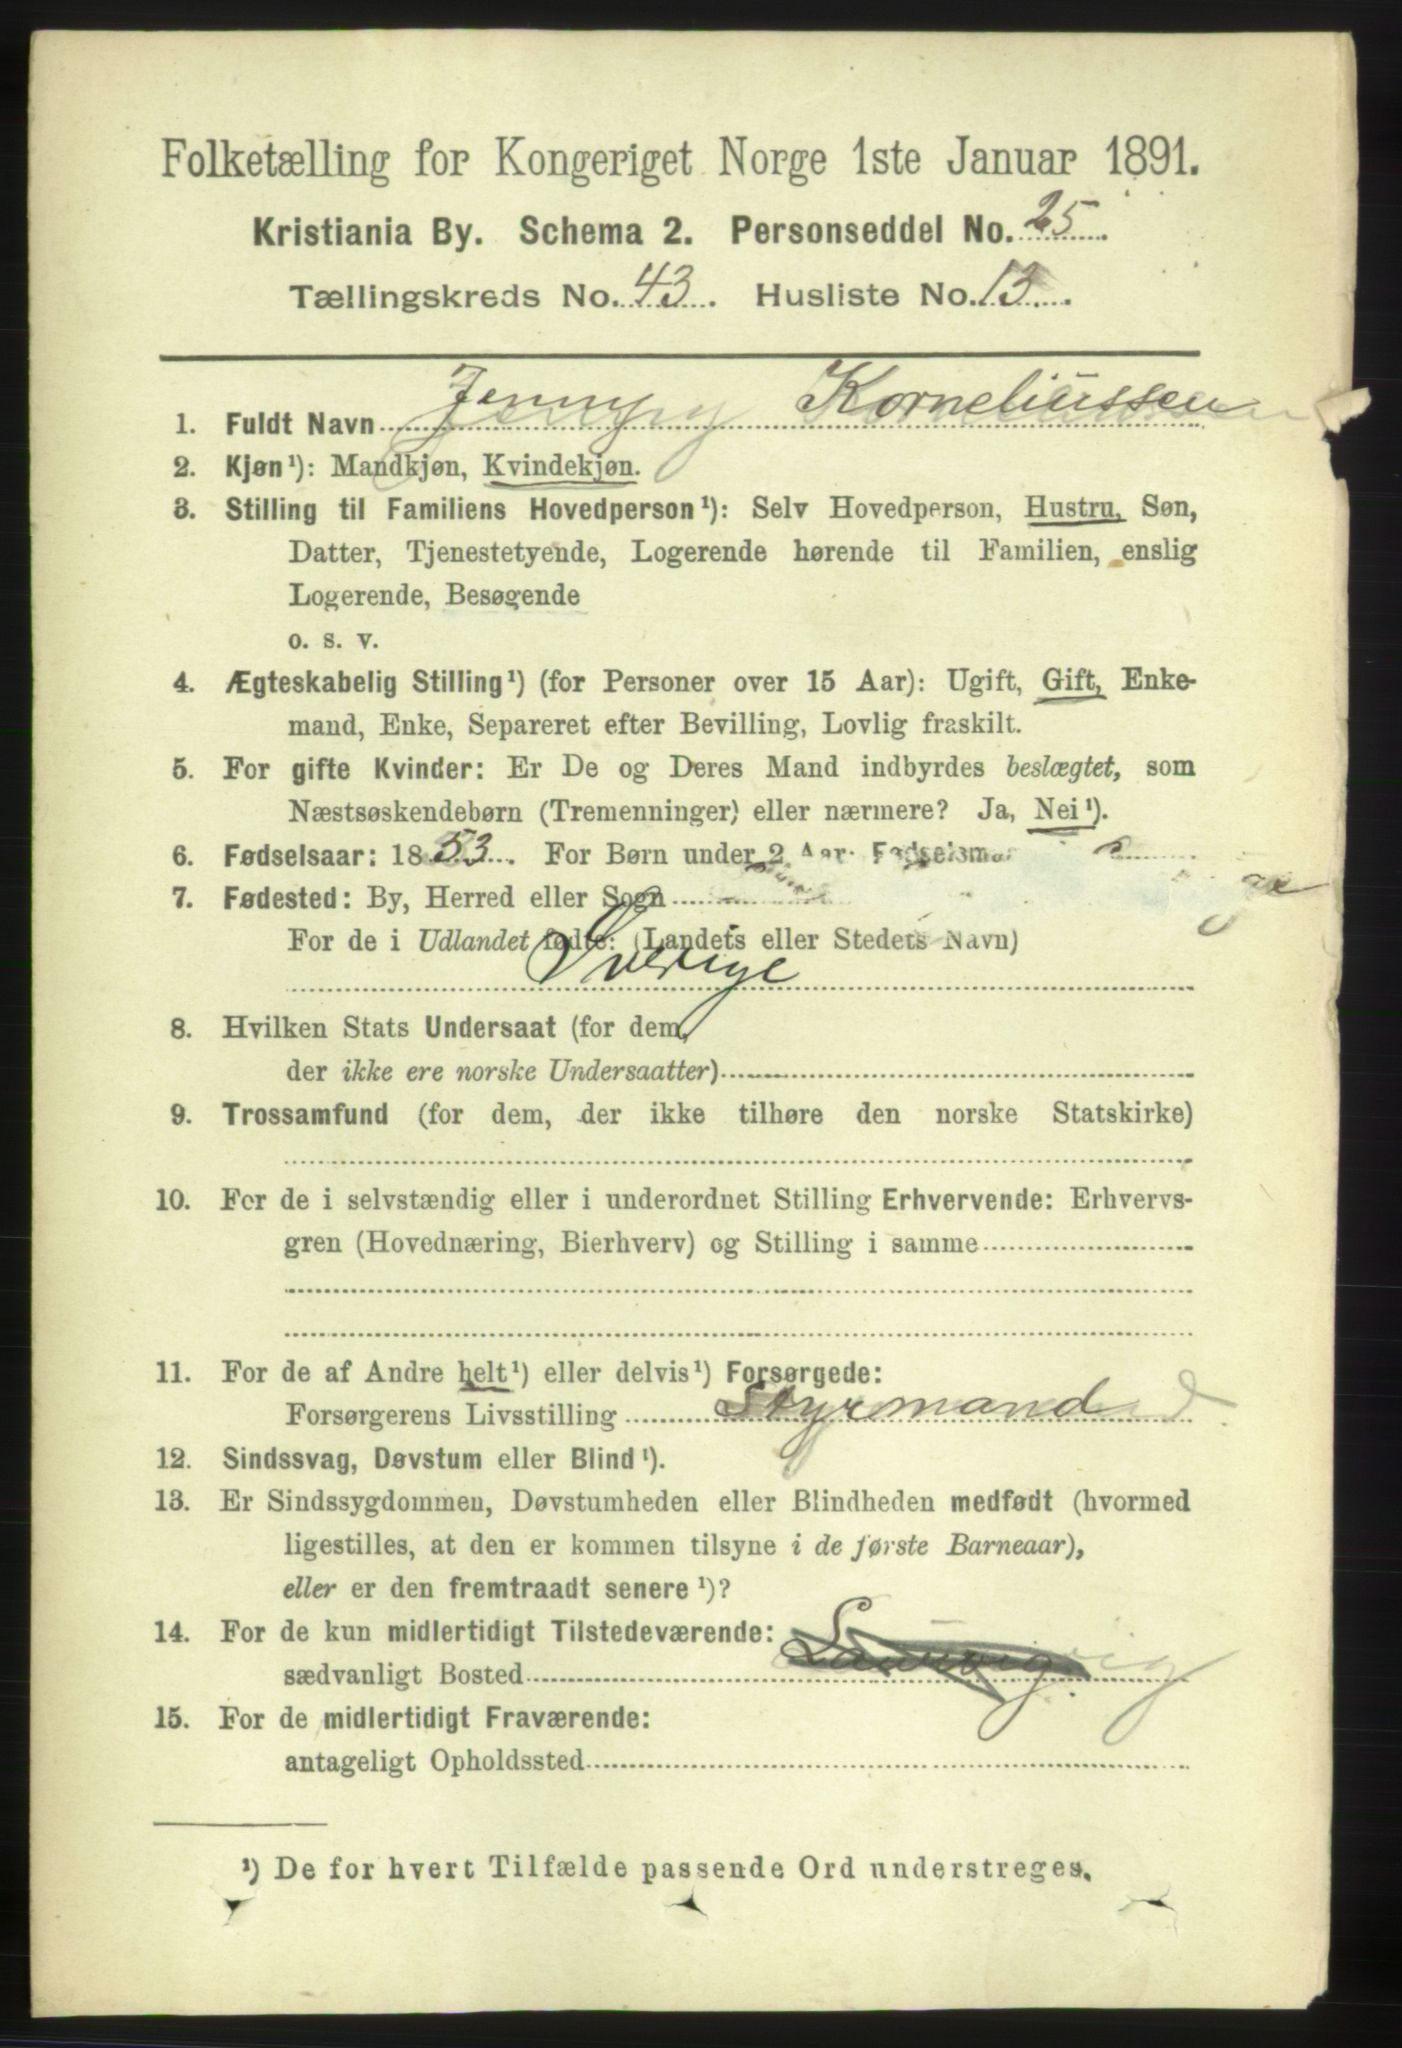 Folketælling for Kongeriget Norge 1ste Januar 1891.
Kristiania By. Schema 2. Personseddel No. 25.
Tællingskreds No. 43. Husliste No. 13.
1. Fuldt Navn Jenny Korneliussen
2. Kjøn¹): Mandkjøn, Kvindekjøn.
3. Stilling til Familiens Hovedperson¹): Selv Hovedperson, Hustru, Søn,
Datter, Tjenestetyende, Logerende hørende til Familien, enslig
Logerende, Besøgende
o. s. v.
4. Ægteskabelig Stilling¹) (for Personer over 15 Aar): Ugift, Gift, Enke-
mand, Enke, Separeret efter Bevilling, Lovlig fraskilt.
5. For gifte Kvinder: Er De og Deres Mand indbyrdes beslægtet, som
Næstsøskendebørn (Tremenninger) eller nærmere? Ja, Nei¹).
6. Fødselsaar: 1853. For Børn under 2 Aar: Fødselsmaa
7. Fødested: By, Herred eller Sogn
For de i Udlandet fødte: (Landets eller Stedets Navn)
Sverige
8. Hvilken Stats Undersaat (for dem,
der ikke ere norske Undersaatter)
9. Trossamfund (for dem, der ikke tilhøre den norske Statskirke)
10. For de i selvstændig eller i underordnet Stilling Erhvervende: Erhvervs-
gren (Hovednæring, Bierhverv) og Stilling i samme
11. For de af Andre helt¹) eller delvis¹) Forsørgede:
Forsørgerens Livsstilling Styrmand
12. Sindssvag, Døvstum eller Blind¹).
13. Er Sindssygdommen, Døvstumheden eller Blindheden medfødt (hvormed
ligestilles, at den er kommen tilsyne i de første Barneaar),
eller er den fremtraadt senere¹)?
14. For de kun midlertidigt Tilstedeværende:
sædvanligt Bosted Laurvig
15. For de midlertidigt Fraværende:
antageligt Opholdssted
¹) De for hvert Tilfælde passende Ord understreges.